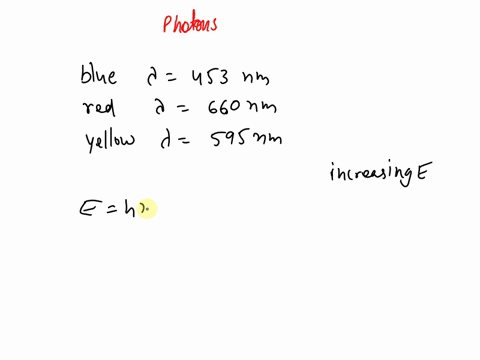 Photons
blue λ = 453 nm
red λ = 660 nm
yellow λ = 595 nm
increasing E
E = h